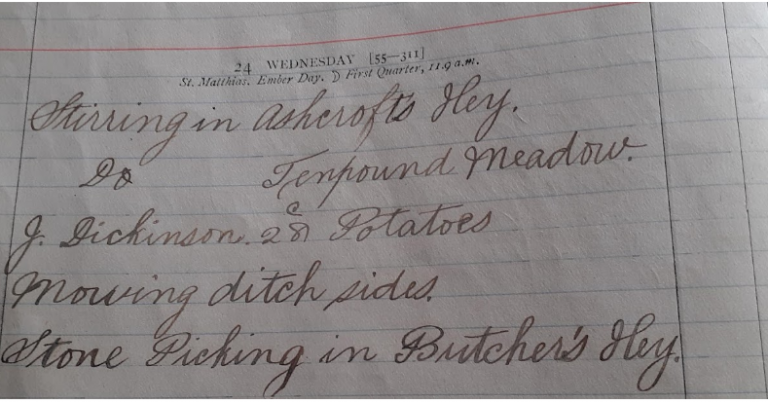 24 WEDNESDAY [55—311]
St. Matthias. Ember Day. ☽ First Quarter, 11.9 a.m.
Stirring in Ashcrofts Hey.
Do Tenpound Meadow.
J. Dickinson. 2 Potatoes
Mowing ditch sides.
Stone Picking in Butcher's Hey.